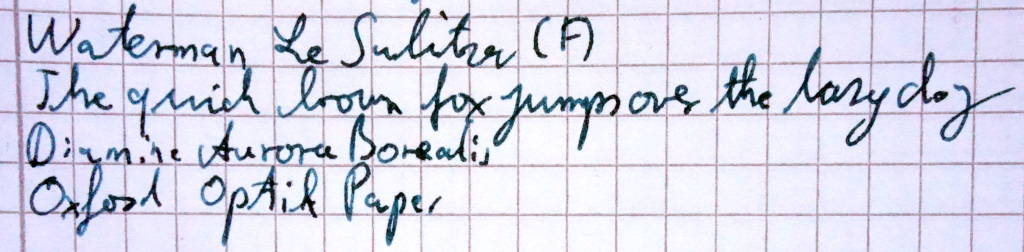 Waterman Le Sulitzer (F)
The quick brown fox jumps over the lazy dog
Diamine Aurora Borealis
Oxford Optik Paper